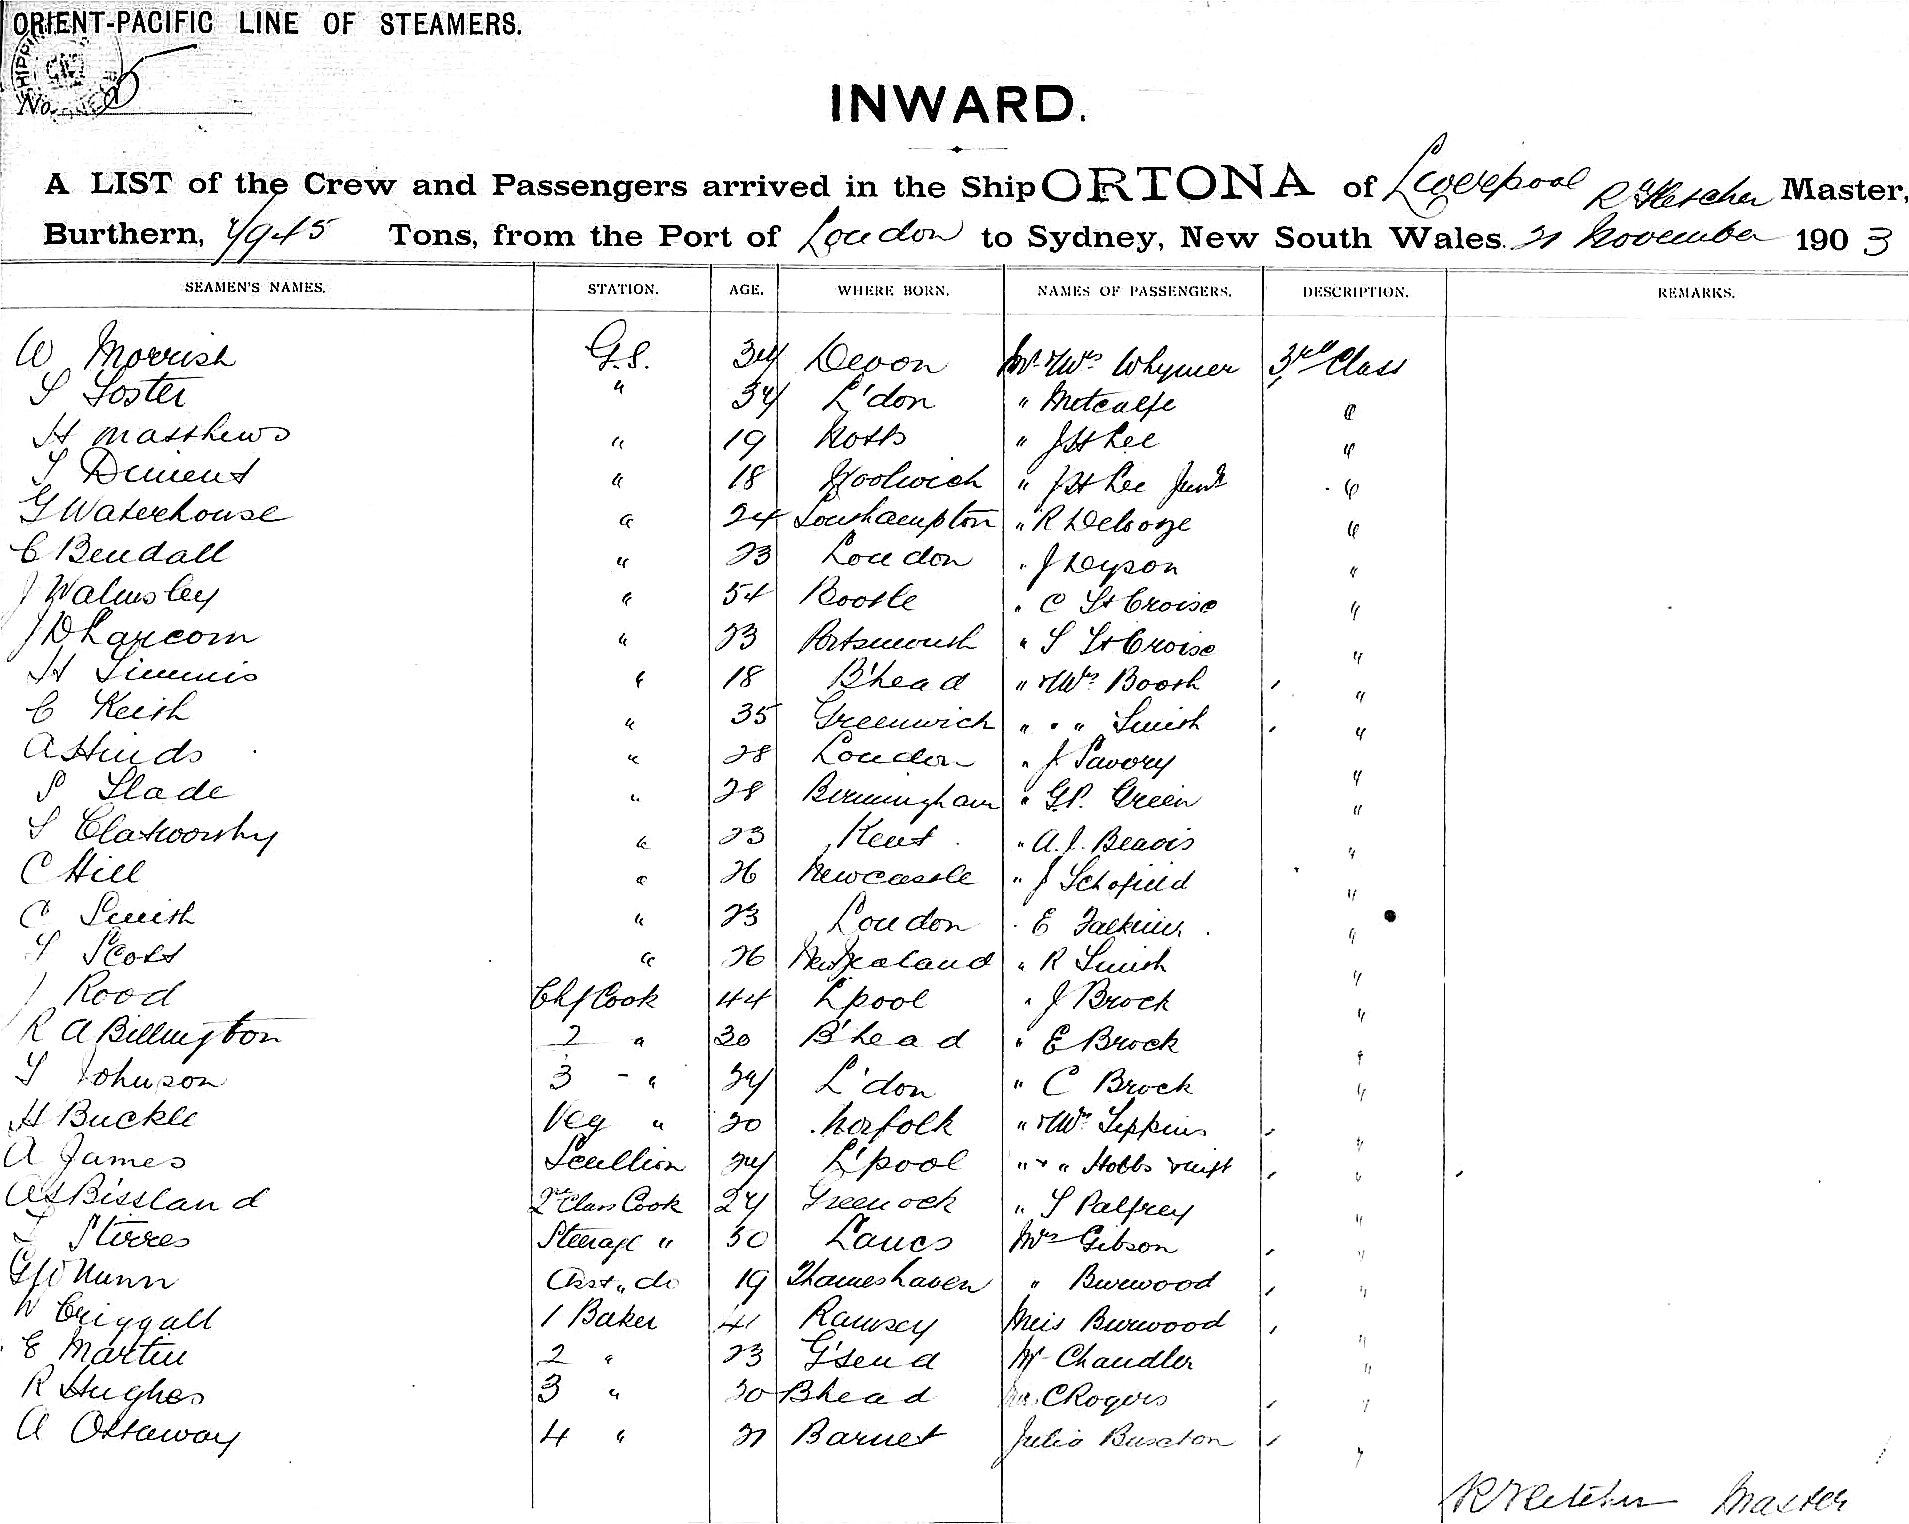 ORIENT-PACIFIC LINE OF STEAMERS.
No. 5
INWARD.
A LIST of the Crew and Passengers arrived in the Ship ORTONA of Liverpool R Fletcher Master,
Burthern, 7945 Tons, from the Port of London to Sydney, New South Wales. 21 November 1903
SEAMEN'S NAMES. STATION. AGE. WHERE BORN. NAMES OF PASSENGERS. DESCRIPTION. REMARKS.
W Morrish G.S. 34 Devon Mr & Mrs Whymer 3rd Class
S Foster " 34 L'don " Metcalfe "
H Matthews " 19 Notts " J H Lee "
T Diment " 18 Woolwich " J H Lee Junr "
G Waterhouse " 24 Southampton " R "
C Bendall " 23 London " J Dyson "
J Walmsley " 54 Bootle " C St Croise "
J " 23 Portsmouth " S St Croise "
H Simmis " 18 B'head " & Mrs Booth "
C Keith " 35 Greenwich " " " Smith "
A Hinds " 28 London " J Savory "
S Slade " 28 Birmingham " G.P. Green "
S Clatworthy " 23 Kent " A.J. Beavis "
C Hill " 26 Newcastle " J Schofield "
C Smith " 23 London " E Falkiner "
T Scott " 26 New Zealand " R Smith "
J Rood Chf Cook 44 L'pool " J Brock "
R A Billington 2 " 30 B'head " E Brock "
T Johnson 3 - " 24 L'don " C Brock "
H Buckle Veg " 20 Norfolk " & Mrs Tippins "
A James Scullion 24 L'pool " & " Hobbs & inft "
A S Bissland 2nd Class Cook 24 Greenock " S Palfrey "
Stirres Steerage " 30 Lancs Mrs Gibson "
G W Nunn Asst " do 19 Thameshaven " Burwood "
W Criggall 1 Baker 41 Ramsey Miss Burwood "
E Martin 2 " 23 G'send Mr Chandler "
R Hughes 3 " 20 Bhead C Rogers "
A Ottaway 4 " 21 Barnet Julia Buxton "
R Fletcher Master